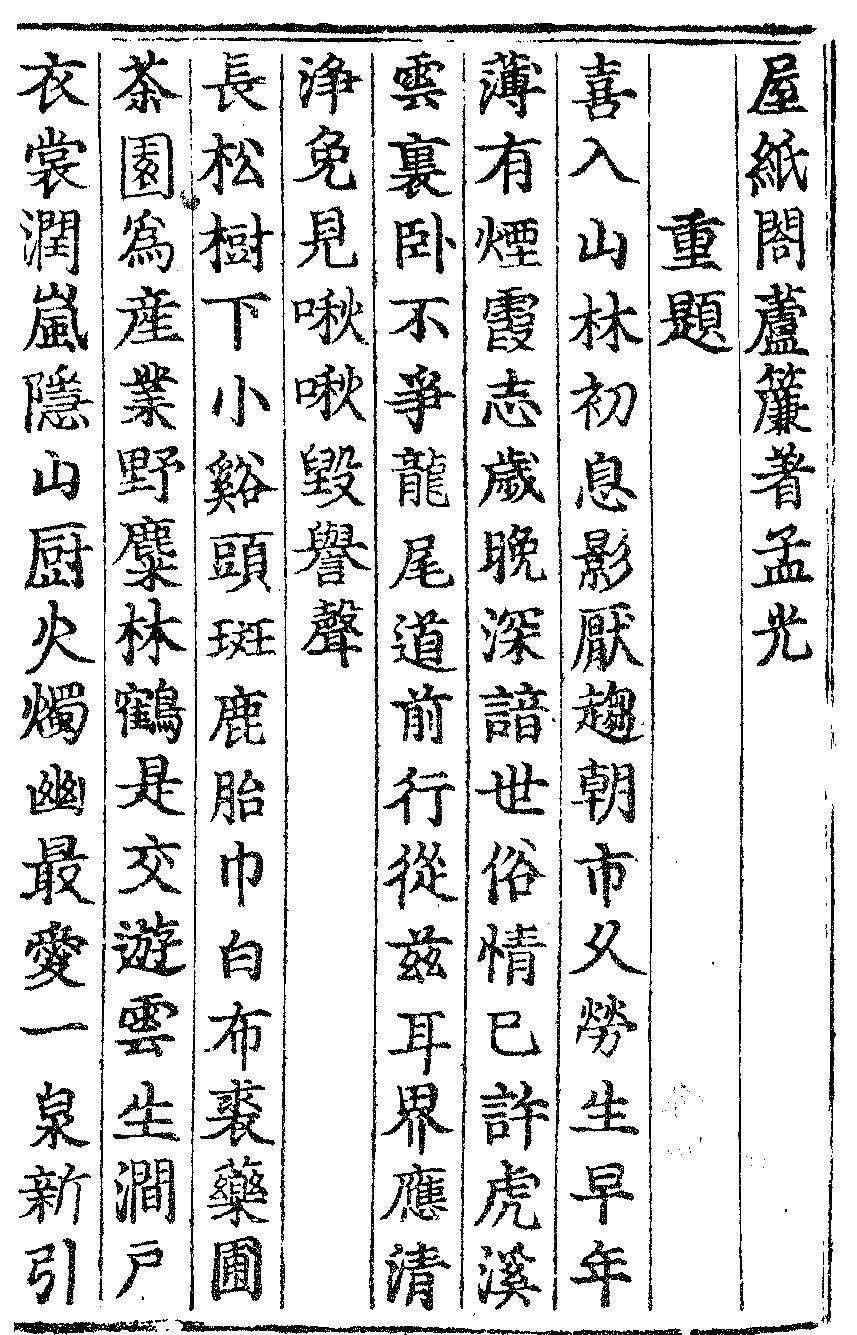 屋紙閣蘆簾著孟光
重題
喜入山林初息影厭趨朝市久勞生早年
薄有煙霞志歲晚深諳世俗情已許虎溪
雲裏卧不爭龍尾道前行從兹耳界應清
淨免見啾啾毀譽聲
長松樹下小谿頭斑鹿胎巾白布裘藥圃
茶園爲産業野麋林鶴是交遊雲生澗戶
衣裳潤嵐隱山厨火燭幽最愛一泉新引